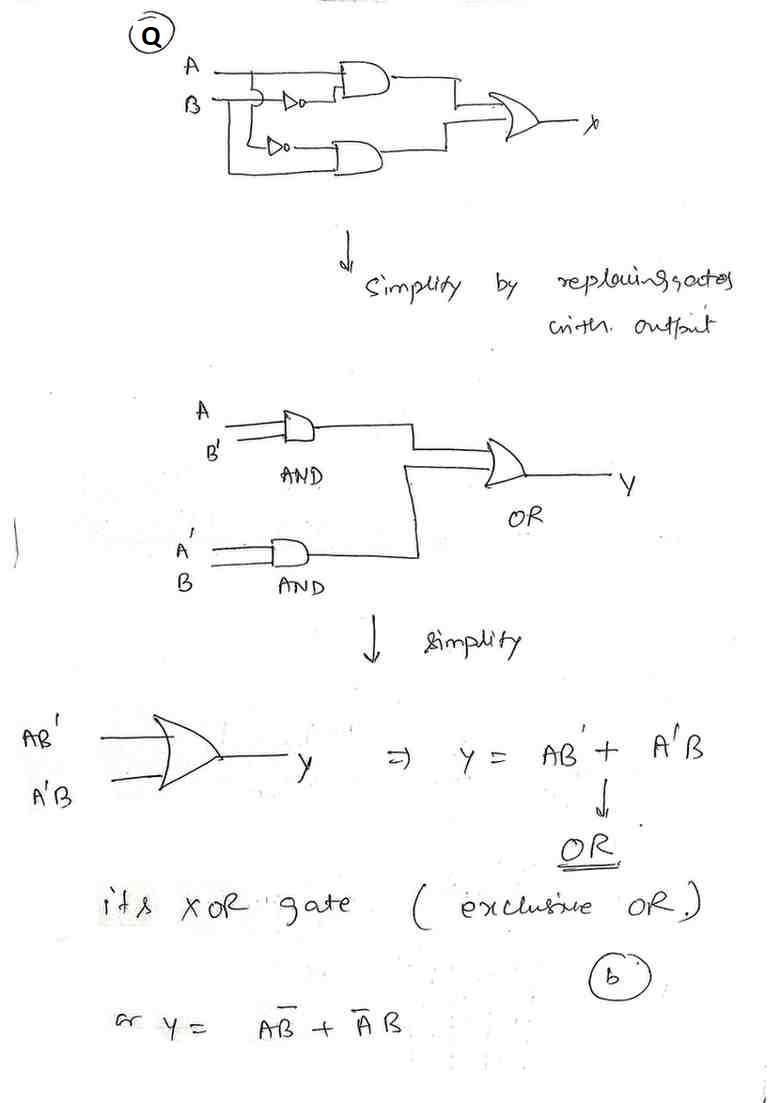 Q
A
B
x
↓
Simplify by replacing gates
with output
A
B'
AND
Y
OR
A'
B
AND
↓ simplify
AB'
A'B
y ⇒ Y = AB' + A'B
↓
OR
its XOR gate (exclusive OR.)
b
or Y = AB̅ + A̅B